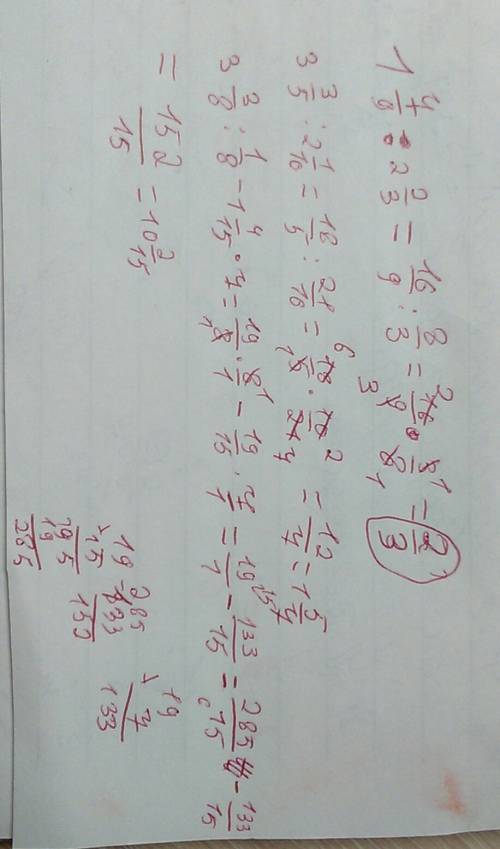 1 7/9 : 2 2/3 = 16/9 : 8/3 = 16/9 · 3/8 = 2/3
3 3/5 : 2 1/10 = 18/5 : 21/10 = 18/5 · 10/21 = 12/7 = 1 5/7
3 3/8 : 1/8 - 1 4/15 · 7 = 19/8 · 8/1 - 19/15 · 7/1 = 19/1 - 133/15 = 285/15 - 133/15
= 152/15 = 10 2/15
19
× 15
95
19
285
285
- 133
19
× 7
133